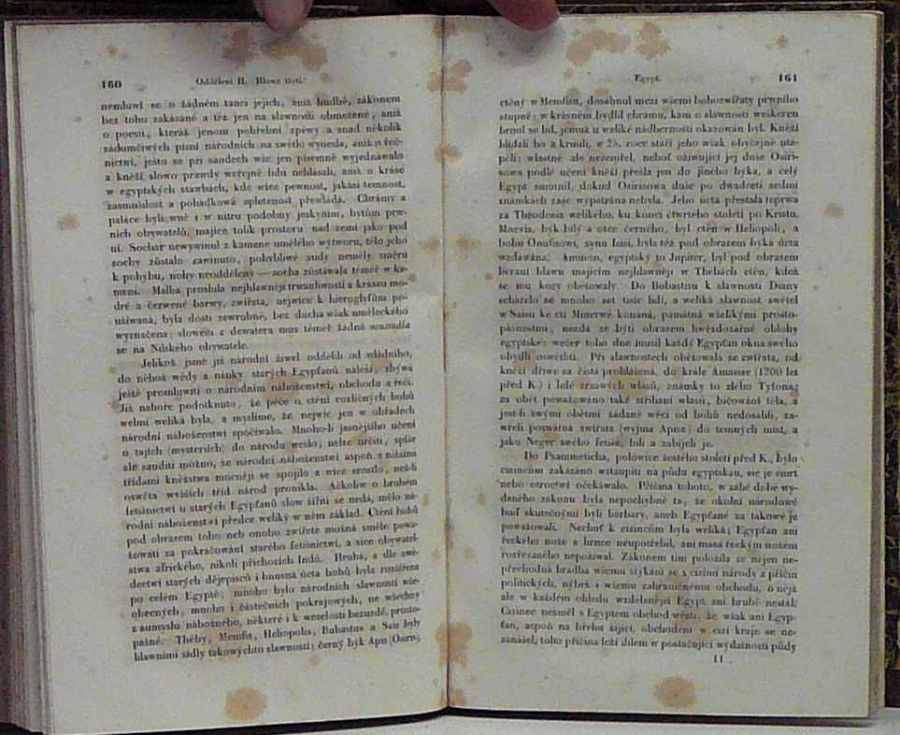 160 Oddělení II. Hlawa
nemluwí se o žádném tanci jejich, aniž hudbě, zákonem
bez toho zakázané a též jen na slawnosti obmezené, aniž
o poesii, kteráž jenom pohřební zpěwy a snad několik
zádumčiwých písní národních na swětlo wynesla, aniž o řeč-
nictwí, ješto se při saudech wše jen písemně wyjednáwalo
a kněží slowo prawdy weřejně lidu nehlásali, aniž o kráse
w egyptských stawbách, kde wíce pewnost, jakási temnost,
zasmušilost a pohádkowá spletenost převládá. Chrámy a
paláce byly wně i w nitru podobny jeskyním, bytům pew-
ných obywatelů, majíce tolik prostoru nad zemí jako pod
ní. Sochař newywinul z kamene umělého wýtworu, tělo jeho
sochy zůstalo zawinuto, pohyblivé audy neměly směru
k pohybu, nohy neodděleny — socha zůstáwala téměř w ka-
meni. Malba prosluła nejhlawněji trwanliwostí a krásau mo-
dré a čerwené barwy, zwířata, nejwíce k hieroglyfům po-
užíwaná, byla dosti zewrubně, bez ducha však uměleckého
wyznačena; slowem z dewatera mus téměř žádná neusadila
se na Nilského obywatele.
Jelikož jsme již národní žiwel oddělili od wládního,
do něhož wědy a nauky starých Egypťanů náleží, zbýwá
ještě promluwiti o národním náboženstwí, obchodu a řeči.
Již nahoře podotknuto, že péče o ctění rozličných bohů
welmi weliká byla, a myslíme, že nejwíc jen w obřadech
národní náboženstwí spočíwalo. Mnoho-li jasnějšího učení
o tajích (mysteriích) do národu wešlo, nelze určiti, spíše
ale sauditi možno, že národní náboženstwí aspoň s nižšími
třídami kněžstwa mocněji se spojilo a wíce srostlo, nežli
oswěta wyšších tříd národ pronikla. Ačkoliw o hrubém
fetišnictwí u starých Egypťanů slow šířiti se nedá, mělo ná-
rodní náboženstwí předce weliký w něm základ. Ctění bohů
pod obrazem toho neb onoho zwířete možná směle powa-
žowati za pokračowání starého fetišnictwí, a sice obywatel-
stwa afrického, nikoli příchozích Indů. Hrubá, a dle swě-
dectwí starých dějepisců i hnusná úcta bohů byla rozšířena
po celém Egyptě; mnoho bylo národních slawností wše-
obecných, mnoho i částečních pokrajowých, ne wšechny
z aumyslu nábožného, některé i k weselosti bezuzdé, prosto-
pášné. Théby, Memfis, Heliopolis, Bubastus a Sais byly
hlawními sídly takowýchto slawností; černý býk Apu (Osiris)
Egypt. 161
ctěný w Memfiu, dosáhnul mezi wšemi bohozwířaty prwního
stupně; w krásném bydlil chrámu, kam o slawnosti weškeren
hrnul se lid, jemuž u weliké nádhernosti okazowán byl. Kněží
hlídali ho a krmili, w 25. roce stáří jeho wšak obyčejně uto-
pili; wlastně ale nezemřel, neboť oživující jej duše Osiri-
sowa podle učení kněží přešla jen do jiného býka, a celý
Egypt smutnil, dokud Osirisowa duše po dwadceti sedmi
známkách zase wypátrána nebyla. Jeho úcta přestala teprwa
za Theodosia welikého, ku konci čtwrtého století po Kristu.
Mnewis, býk bílý z otce černého, byl ctěn w Heliopoli, a
bohu Onufisowi, synu Isisi, byla též pod obrazem býka úcta
wzdáwána. Amnun, egyptský to Jupiter, byl pod obrazem
beraní hlawu majícím nejhlawněji w Thebách ctěn, kdež
se mu kozy obětowaly. Do Bubastusu k slawnosti Diany
scházelo se mnoho set tisíc lidí, a weliká slawnost swětel
w Saisu ke cti Minerwě konaná, památná welikými prosto-
pášnostmi, nezdá se býti obrazem hwězdozářné oblohy
egyptské: wečer toho dne musil každý Egypťan okna swého
obydlí oswětliti. Při slawnostech obětowala se zwířata, od
kněží dříwe za čistá prohlášená, do krále Amasise (1200 let
před K.) i lidé zrzawých wlasů, známky to zlého Tyfona;
za oběť powažowáno také stříhání wlasů, bičowání těla, a
jest-li swými obětmi žádané wěci od bohů nedosáhli, za-
wřeli poswátná zwířata (wyjma Apna) do temných míst, a
jako Neger swého fetiše, bili a zabíjeli je.
Do Psammeticha, polowice šestého století před K., bylo
cizincům zakázáno wstaupiti na půdu egyptskau, sic je smrt
nebo otroctwí očekáwalo. Příčina tohoto, w šabé době wy-
daného zákonu byla nepochybně ta, že okolní národowé
buď skutečnými byli barbary, aneb Egypťané za takowé je
powažowali. Nechuť k cizincům byla weliká; Egypťan ani
řeckého nože a hrnce neupotřebil, ani masa řeckým nožem
rozřezaného nepožíwal. Zákonem tím položila se nejen ne-
přechodná hradba wšemu stýkání se s cizími národy z příčin
politických, nýbrž i wšemu zahraničnému obchodu, o nějž
ale w každém ohledu wzdělanější Egypt ani hrubě nestál.
Cizinec nesměl s Egyptem obchod wésti, že wšak ani Egyp-
ťan, aspoň na břehu žijící, obchodem w cizí kraje se ne-
zanášel, toho příčina leží dílem w postačující wydatnosti půdy
11